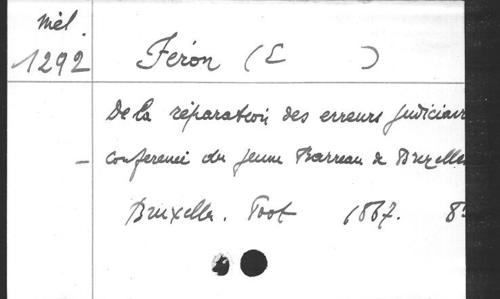 Mél.
1292 Féron (E )
De la réparation des erreurs judiciair
– conference du jeune Barreau de Bruxelle
Bruxelle. Toot 1867. 8º